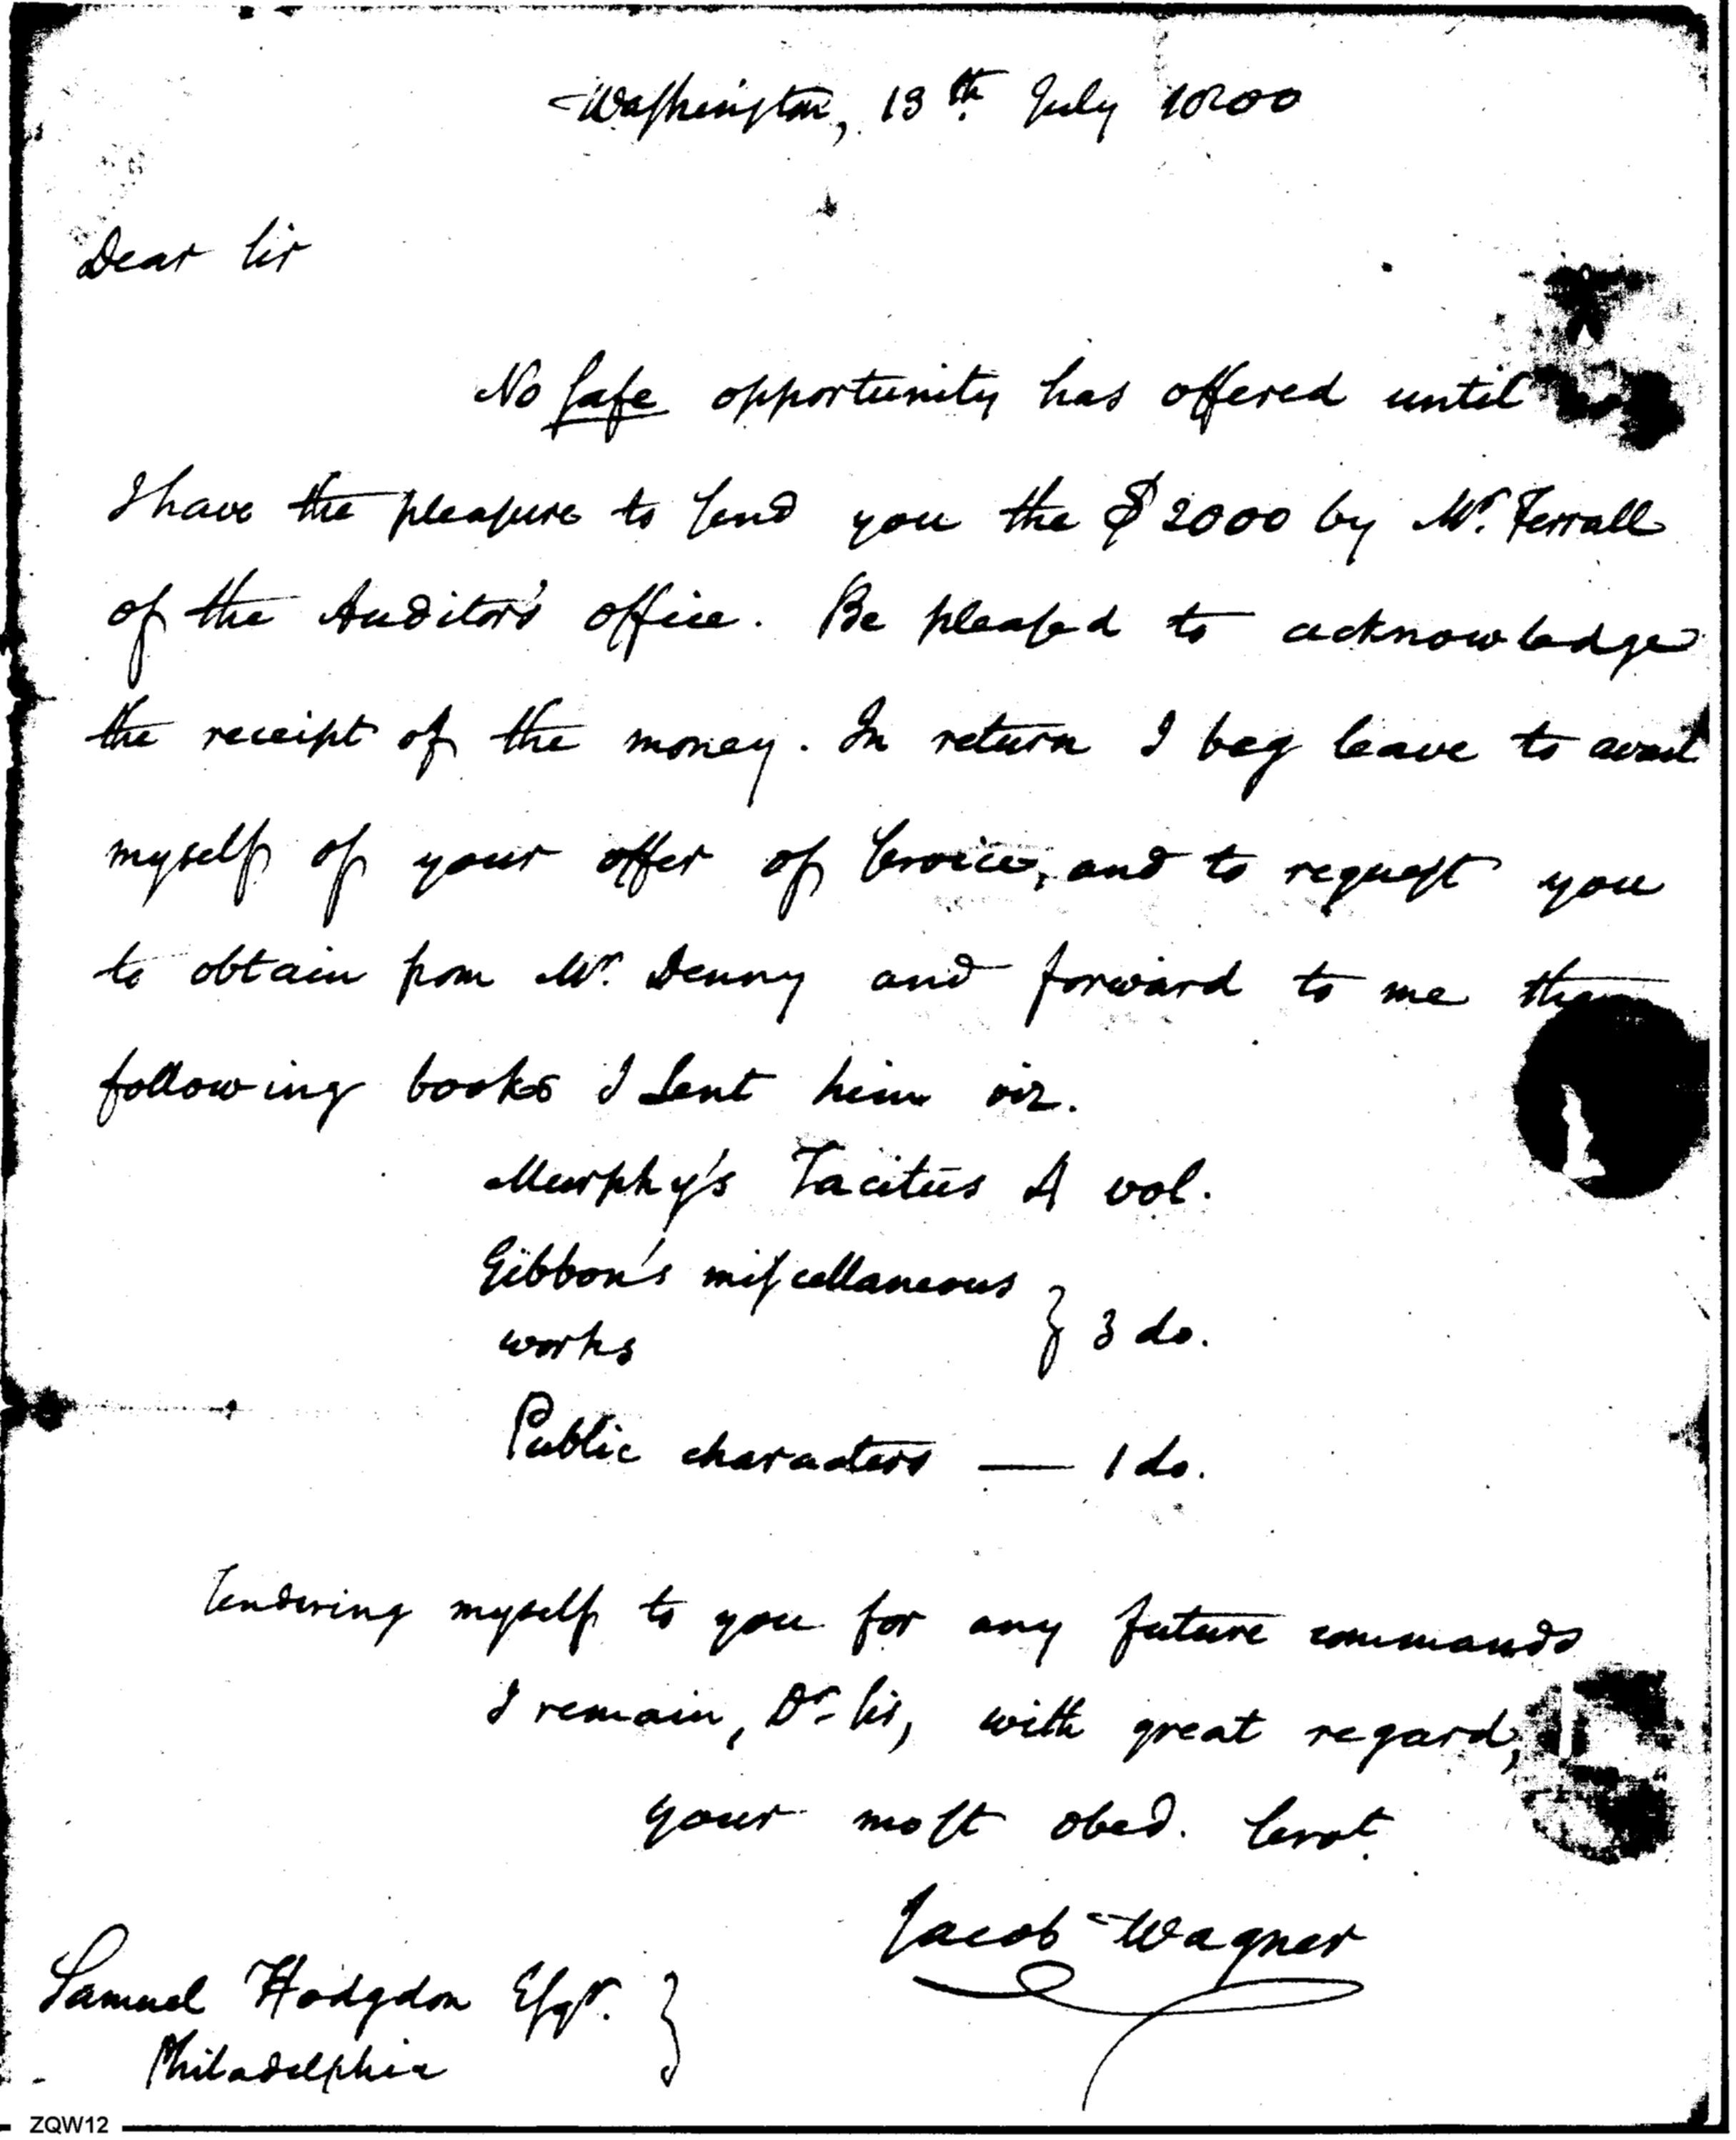 Washington, 13th July 1800
Dear Sir
No safe opportunity has offered until
I have the pleasure to send you the $2000 by Mr. Ferrall
of the Auditor's office. Be pleased to acknowledge
the receipt of the money. In return I beg leave to avail
myself of your offer of service, and to request you
to obtain from Mr. Denny and forward to me the
following books I sent him viz.
Murphy's Tacitus 4 vol.
Gibbon's miscellaneous
works } 3 do.
Public characters — 1 do.
Tendering myself to you for any future commands
I remain, Dr. Sir, with great regard,
your most obed. servt.
Jacob Wagner
Samuel Hodgdon Esqr. }
Philadelphia
ZQW12